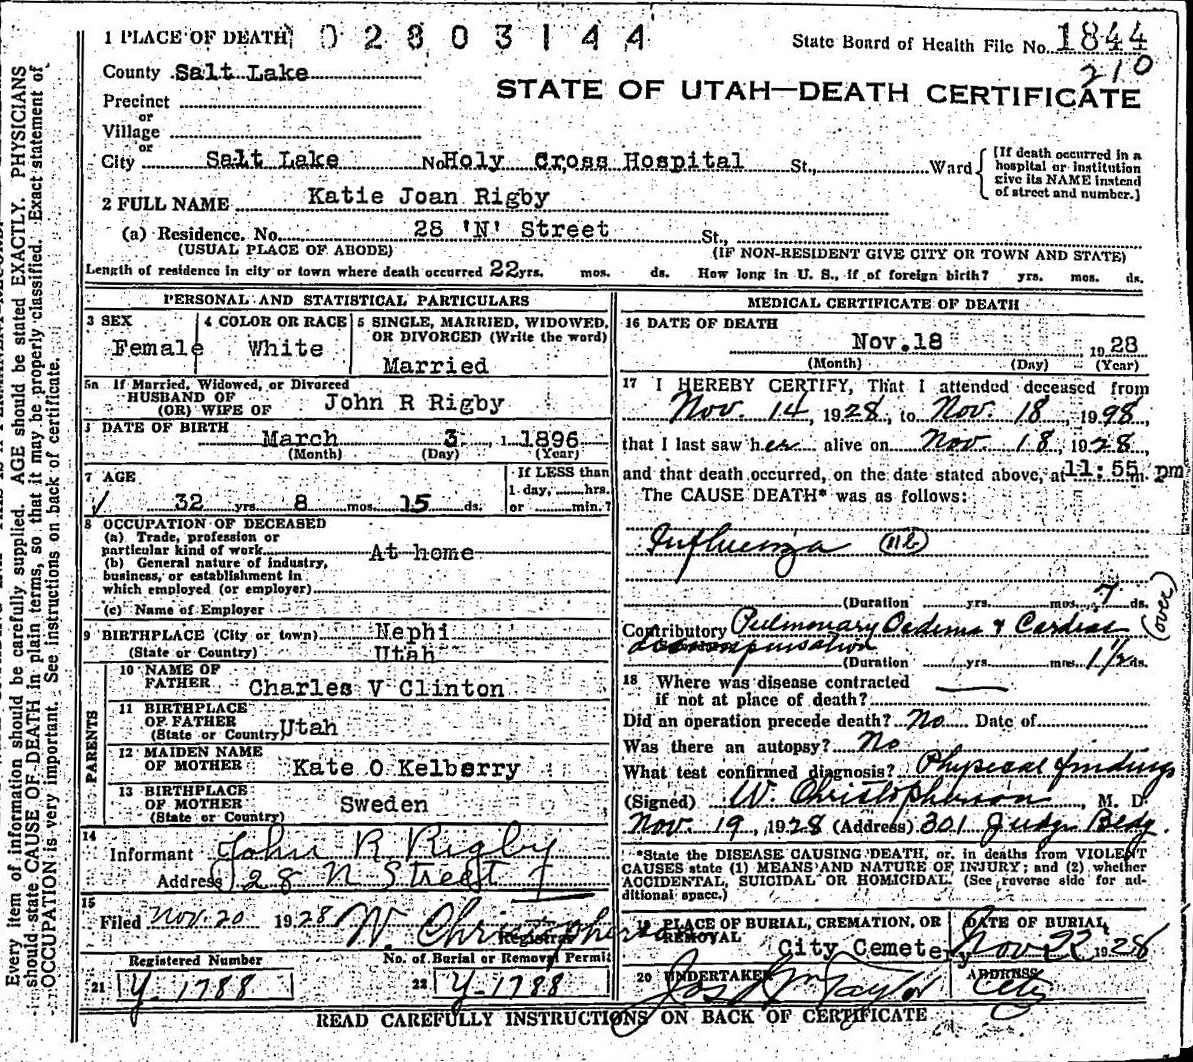 1 PLACE OF DEATH 02803144 State Board of Health File No. 1844
210
County Salt Lake
STATE OF UTAH—DEATH CERTIFICATE
Precinct
or
Village
or
City Salt Lake No. Holy Cross Hospital St., Ward
[If death occurred in a
hospital or institution
give its NAME instead
of street and number.]
2 FULL NAME Katie Joan Rigby
(a) Residence. No. 28 'N' Street St.,
(USUAL PLACE OF ABODE) (IF NON-RESIDENT GIVE CITY OR TOWN AND STATE)
Length of residence in city or town where death occurred 22 yrs. mos. ds. How long in U. S., if of foreign birth? yrs. mos. ds.
PERSONAL AND STATISTICAL PARTICULARS
3 SEX 4 COLOR OR RACE 5 SINGLE, MARRIED, WIDOWED,
OR DIVORCED (Write the word)
Female White
Married
5a If Married, Widowed, or Divorced
HUSBAND OF
(OR) WIFE OF John R Rigby
DATE OF BIRTH
March 3 1 1896
(Month) (Day) (Year)
7 AGE If LESS than
1 day, hrs.
32 yrs. 8 mos. 15 ds. or min.?
8 OCCUPATION OF DECEASED
(a) Trade, profession or
particular kind of work At home
(b) General nature of industry,
business, or establishment in
which employed (or employer)
(c) Name of Employer
9 BIRTHPLACE (City or town) Nephi
(State or Country) Utah
PARENTS
10 NAME OF
FATHER Charles V Clinton
11 BIRTHPLACE
OF FATHER
(State or Country) Utah
12 MAIDEN NAME
OF MOTHER Kate O Kelberry
13 BIRTHPLACE
OF MOTHER Sweden
(State or Country)
14
Informant John R Rigby
Address 28 N Street
15
Filed Nov. 20 1928 W. Christopherson
Registrar
Registered Number No. of Burial or Removal Permit
21 Y-1788 22 Y-1788
MEDICAL CERTIFICATE OF DEATH
16 DATE OF DEATH
Nov. 18 1928
(Month) (Day) (Year)
17 I HEREBY CERTIFY, That I attended deceased from
Nov. 14, 1928, to Nov. 18, 1998,
that I last saw her alive on Nov. 18, 1928,
and that death occurred, on the date stated above, at 11:55 m. pm
The CAUSE DEATH* was as follows:
Influenza
(Duration yrs. mos. 7 ds.
(over)
Contributory Pulmonary Oedema & Cardiac
decompensation
(Duration yrs. mos. 1 1/2 ds.
18 Where was disease contracted
if not at place of death?
Did an operation precede death? No Date of
Was there an autopsy? No
What test confirmed diagnosis? Physical findings
(Signed) W. Christopherson, M. D.
Nov. 19, 1928 (Address) 301 Judge Bldg.
*State the DISEASE CAUSING DEATH, or, in deaths from VIOLENT
CAUSES state (1) MEANS AND NATURE OF INJURY; and (2) whether
ACCIDENTAL, SUICIDAL OR HOMICIDAL. (See reverse side for ad-
ditional space.)
19 PLACE OF BURIAL, CREMATION, OR
REMOVAL DATE OF BURIAL
City Cemetery Nov 22 1928
20 UNDERTAKER ADDRESS
Taylor City
READ CAREFULLY INSTRUCTIONS ON BACK OF CERTIFICATE
Every item of information should be carefully supplied. AGE should be stated EXACTLY. PHYSICIANS
should state CAUSE OF DEATH in plain terms, so that it may be properly classified. Exact statement of
OCCUPATION is very important. See instructions on back of certificate.